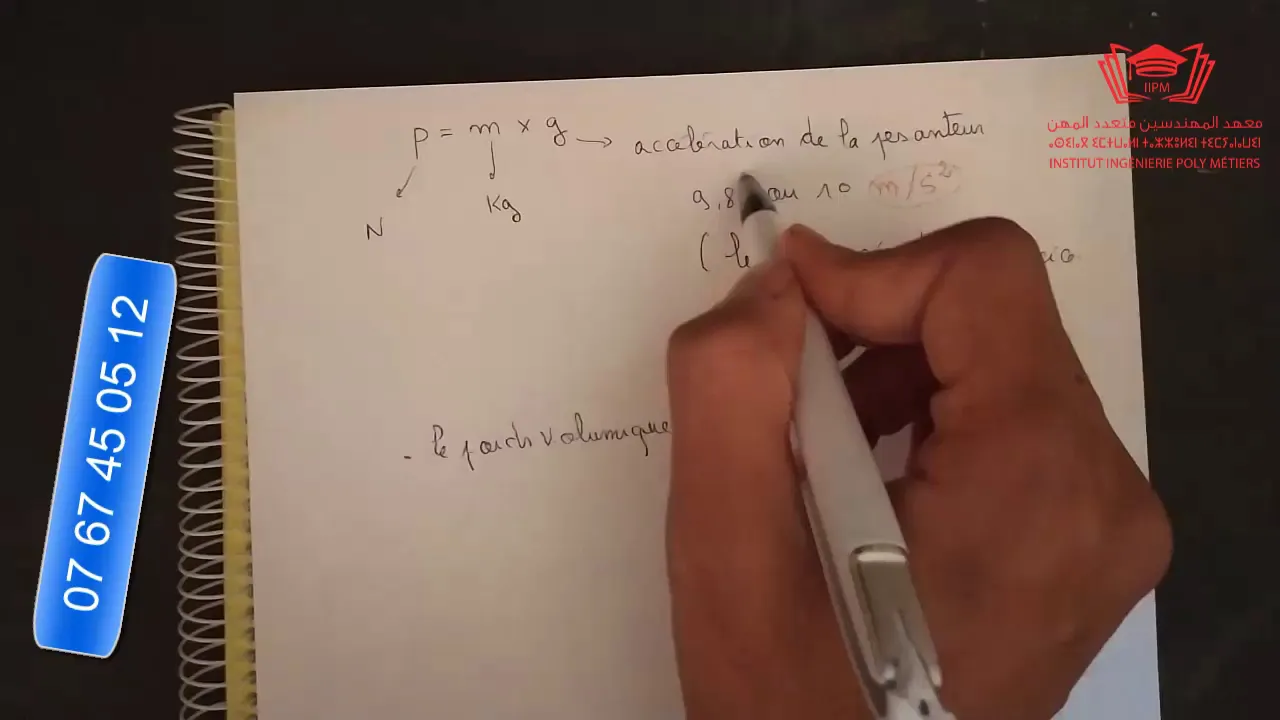 P = m × g → accelération de la pesanteur
N
Kg
9,8 ou 10 m/s²
( le
- le poids volumique
07 67 45 05 12
IIPM
معهد المهندسين متعدد المهن
INSTITUT INGENIERIE POLY MÉTIERS